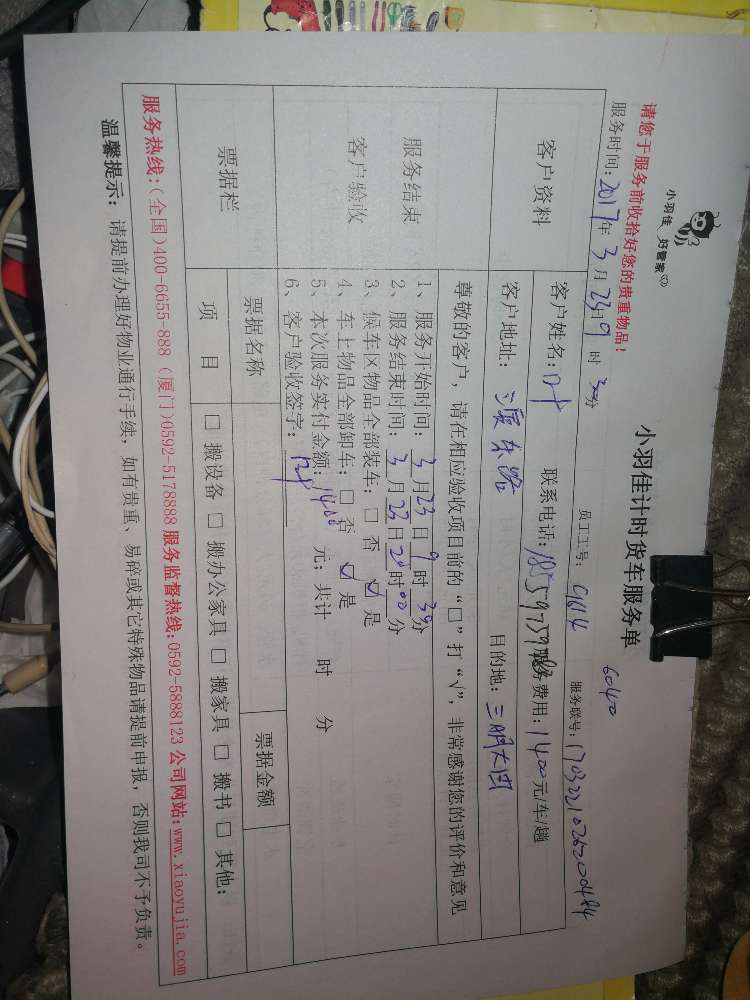 小羽佳 好管家
小羽佳计时货车服务单
6040
请您于服务前收拾好您的贵重物品！
员工工号：9614 服务联号：1703221026200484
服务时间：2017年3月23日9时30分
客户资料
客户姓名： 联系电话： 服务费用：1400元/车/趟
客户地址： 东路 目的地：三明大田
服务结束
客户验收
尊敬的客户，请在相应验收项目前的“□”打“√”，非常感谢您的评价和意见
1、服务开始时间：3月23日9时30分
2、服务结束时间：3月23日20时00分
3、候车区物品全部装车：□ 否 ☑ 是
4、车上物品全部卸车：□ 否 ☑ 是
5、本次服务实付金额：1400元；共计 时 分
6、客户验收签字：
票据栏
票据名称 票据金额
项 目 □ 搬设备 □ 搬办公家具 □ 搬家具 □ 搬书 □ 其他：
服务热线：(全国)400-6655-888 (厦门)0592-5178888 服务监督热线：0592-5888123 公司网站：www.xiaoyujia.com
温馨提示：请提前办理好物业通行手续，如有贵重、易碎或其它特殊物品请提前申报，否则我司不予负责。